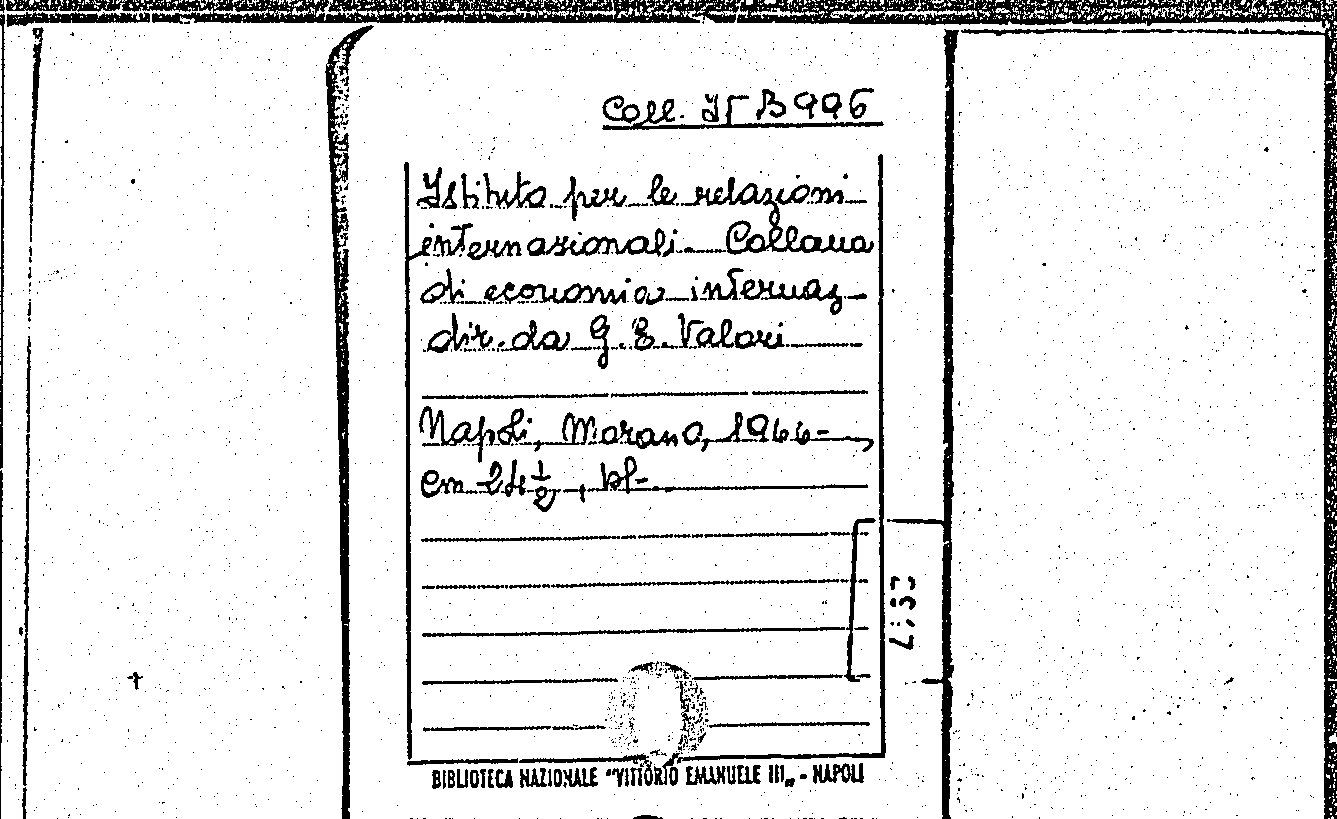 Coll. IT B 996
Istituto per le relazioni
internazionali. Collana
di economia internaz
dir. da G. E. Valori
Napoli, Morano, 1966- ,
cm 24 1/2,
BIBLIOTECA NAZIONALE "VITTORIO EMANUELE III„ - NAPOLI